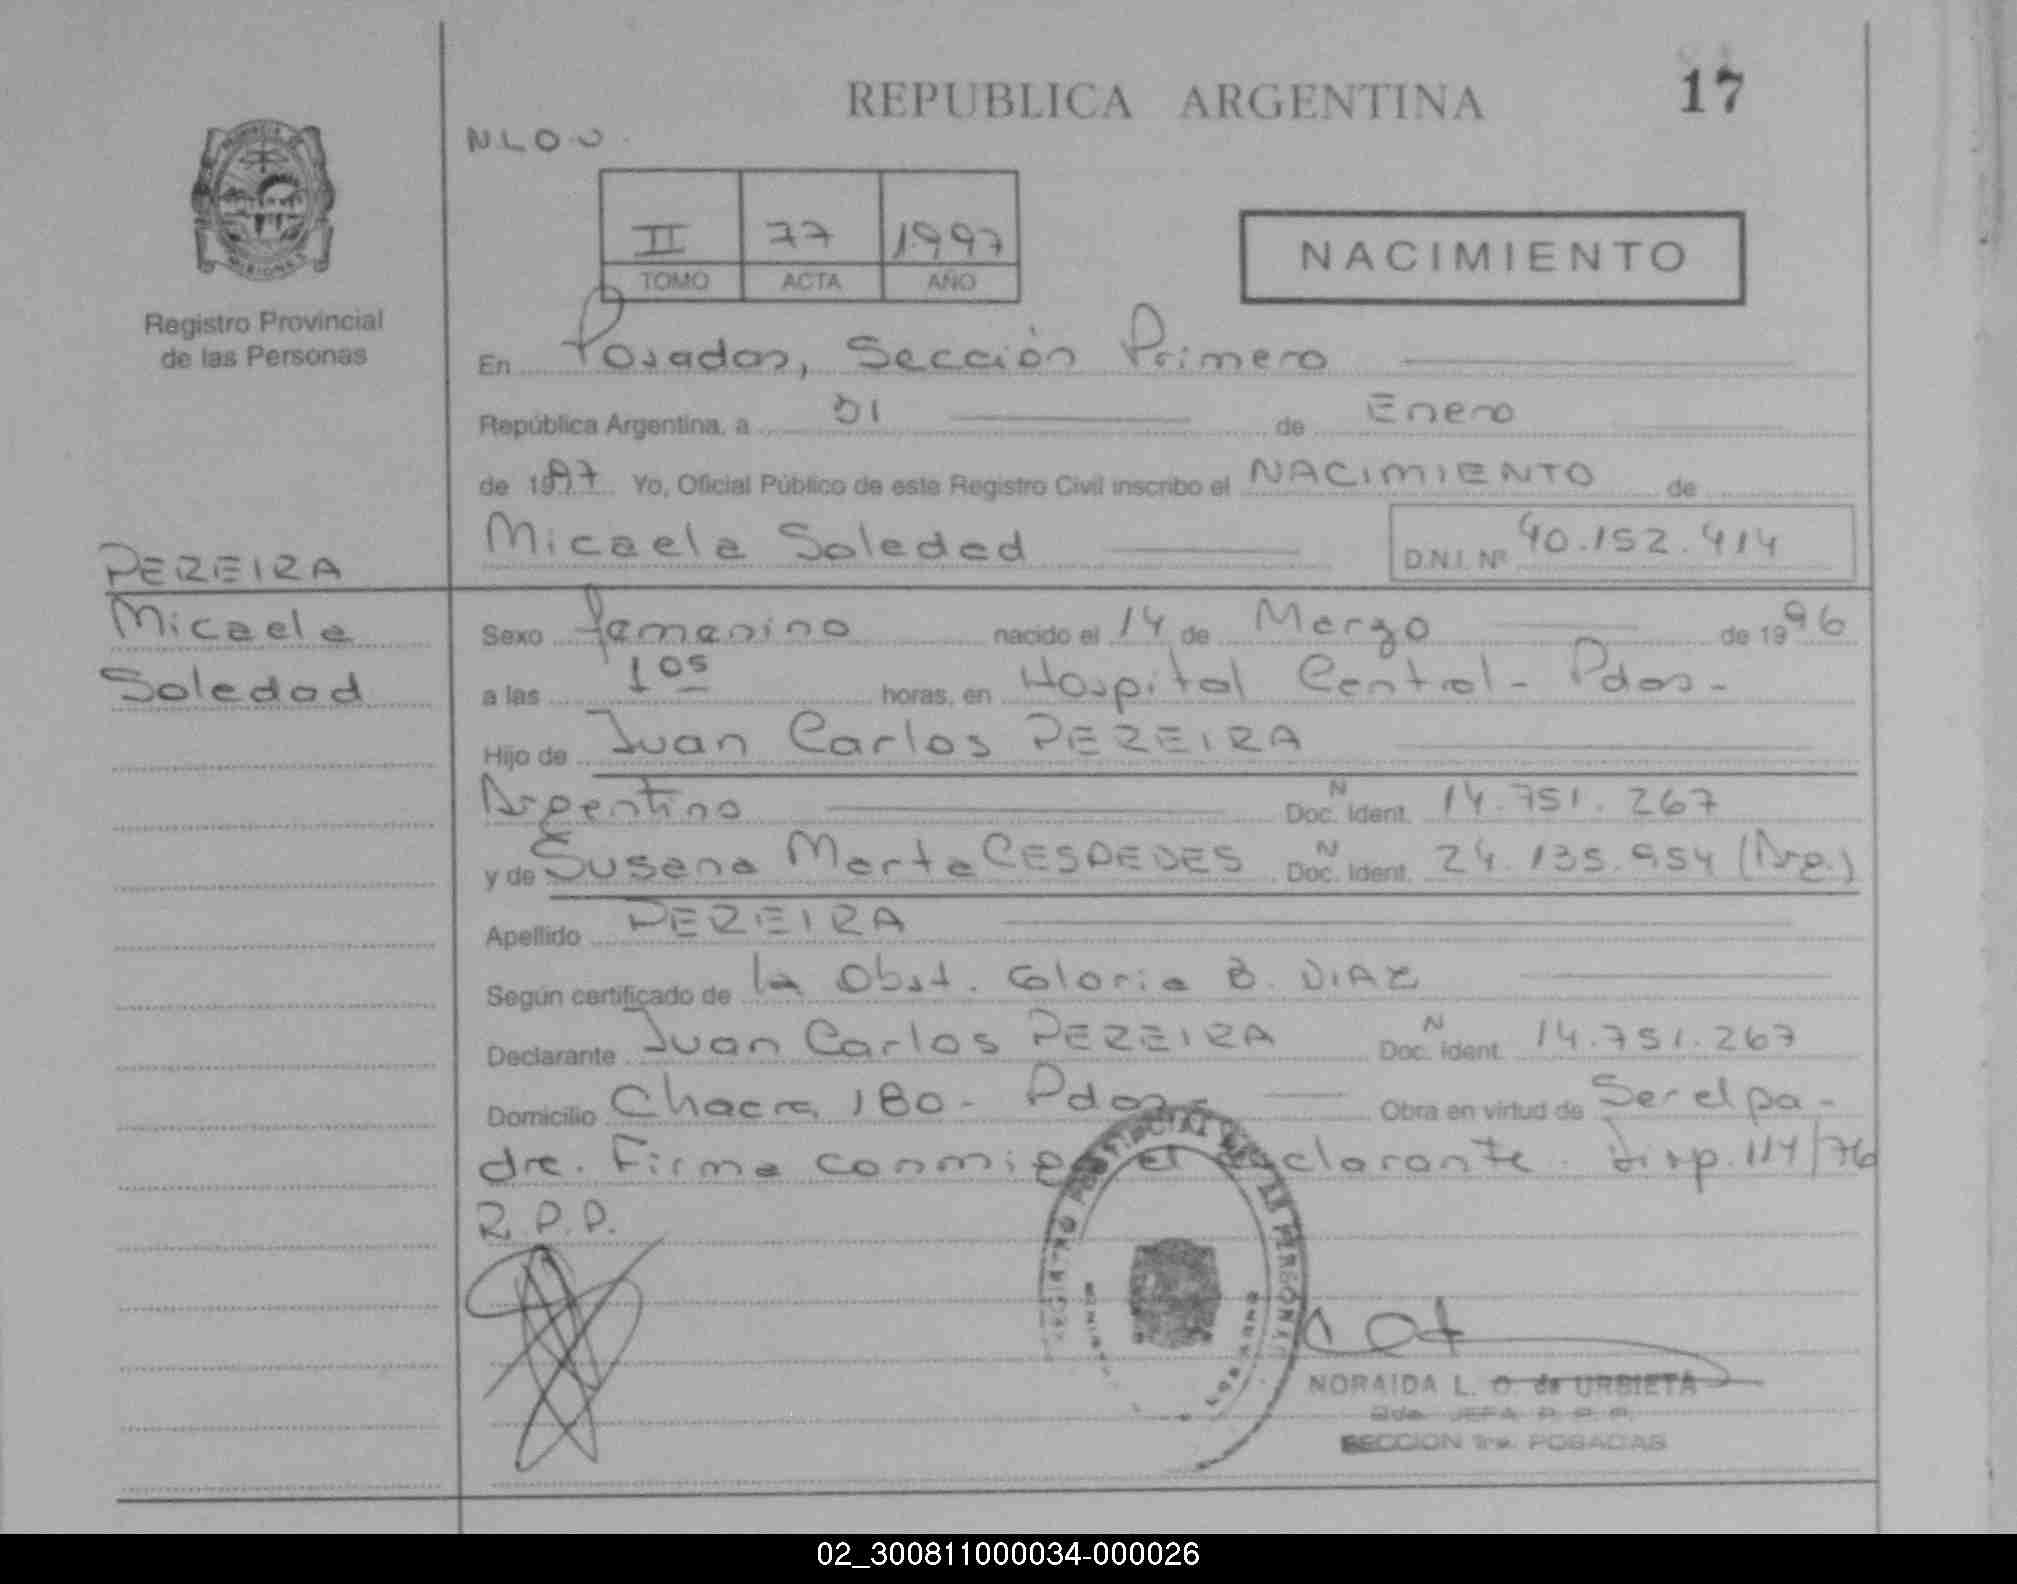 REPUBLICA ARGENTINA
17
N.L.O.U.
II 77 1997
TOMO ACTA AÑO
NACIMIENTO
MISIONES
Registro Provincial
de las Personas
En Posadas, Sección Primera
República Argentina, a 31 de Enero
de 1997 Yo, Oficial Público de este Registro Civil inscribo el NACIMIENTO de
Micaela Soledad D.N.I. Nº 40.152.414
PEREIRA
Micaela
Soledad
Sexo femenino nacido el 14 de Marzo de 1996
a las 1 05 horas, en Hospital Central - Pdas -
Hijo de Juan Carlos PEREIRA
Argentino N Doc. Ident. 14.751.267
y de Susana Marta CESPEDES N Doc. Ident. 24.135.954 (Arg.)
Apellido PEREIRA
Según certificado de la Obst. Gloria B. DIAZ
Declarante Juan Carlos PEREIRA N Doc. Ident. 14.751.267
Domicilio Chacra 180 - Pdas - Obra en virtud de Ser el pa-
dre. Firma conmigo el declarante. Disp. 114/76
R.P.P.
NORAIDA L. O. de URBIETA
JEFA R. P. P.
SECCION 1ra. POSADAS
02_300811000034-000026